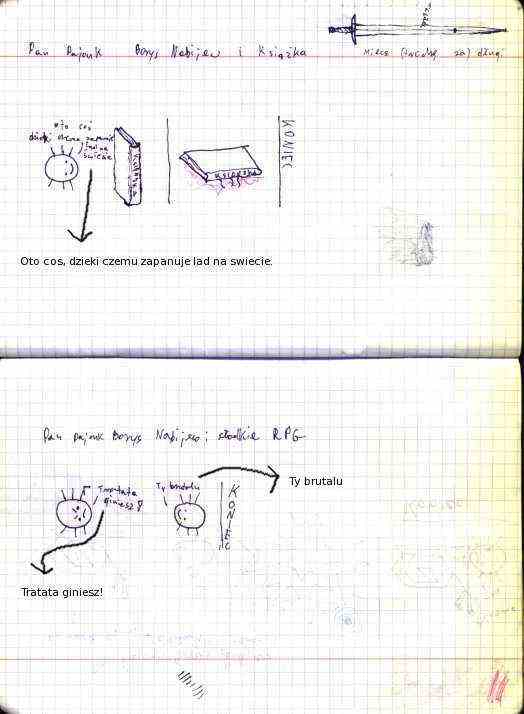 Pan Pająk Borys Nabijew i Książka
Miecz (trochę za) długi
oto coś
dzięki czemu zapanuje
ład na
świecie
Książka
Książka
KONIEC
Oto cos, dzieki czemu zapanuje lad na swiecie.
Pan Pająk Borys Nabijew i słodkie RPG
Tratata
giniesz!
Ty brutalu
KONIEC
Ty brutalu
Tratata giniesz!